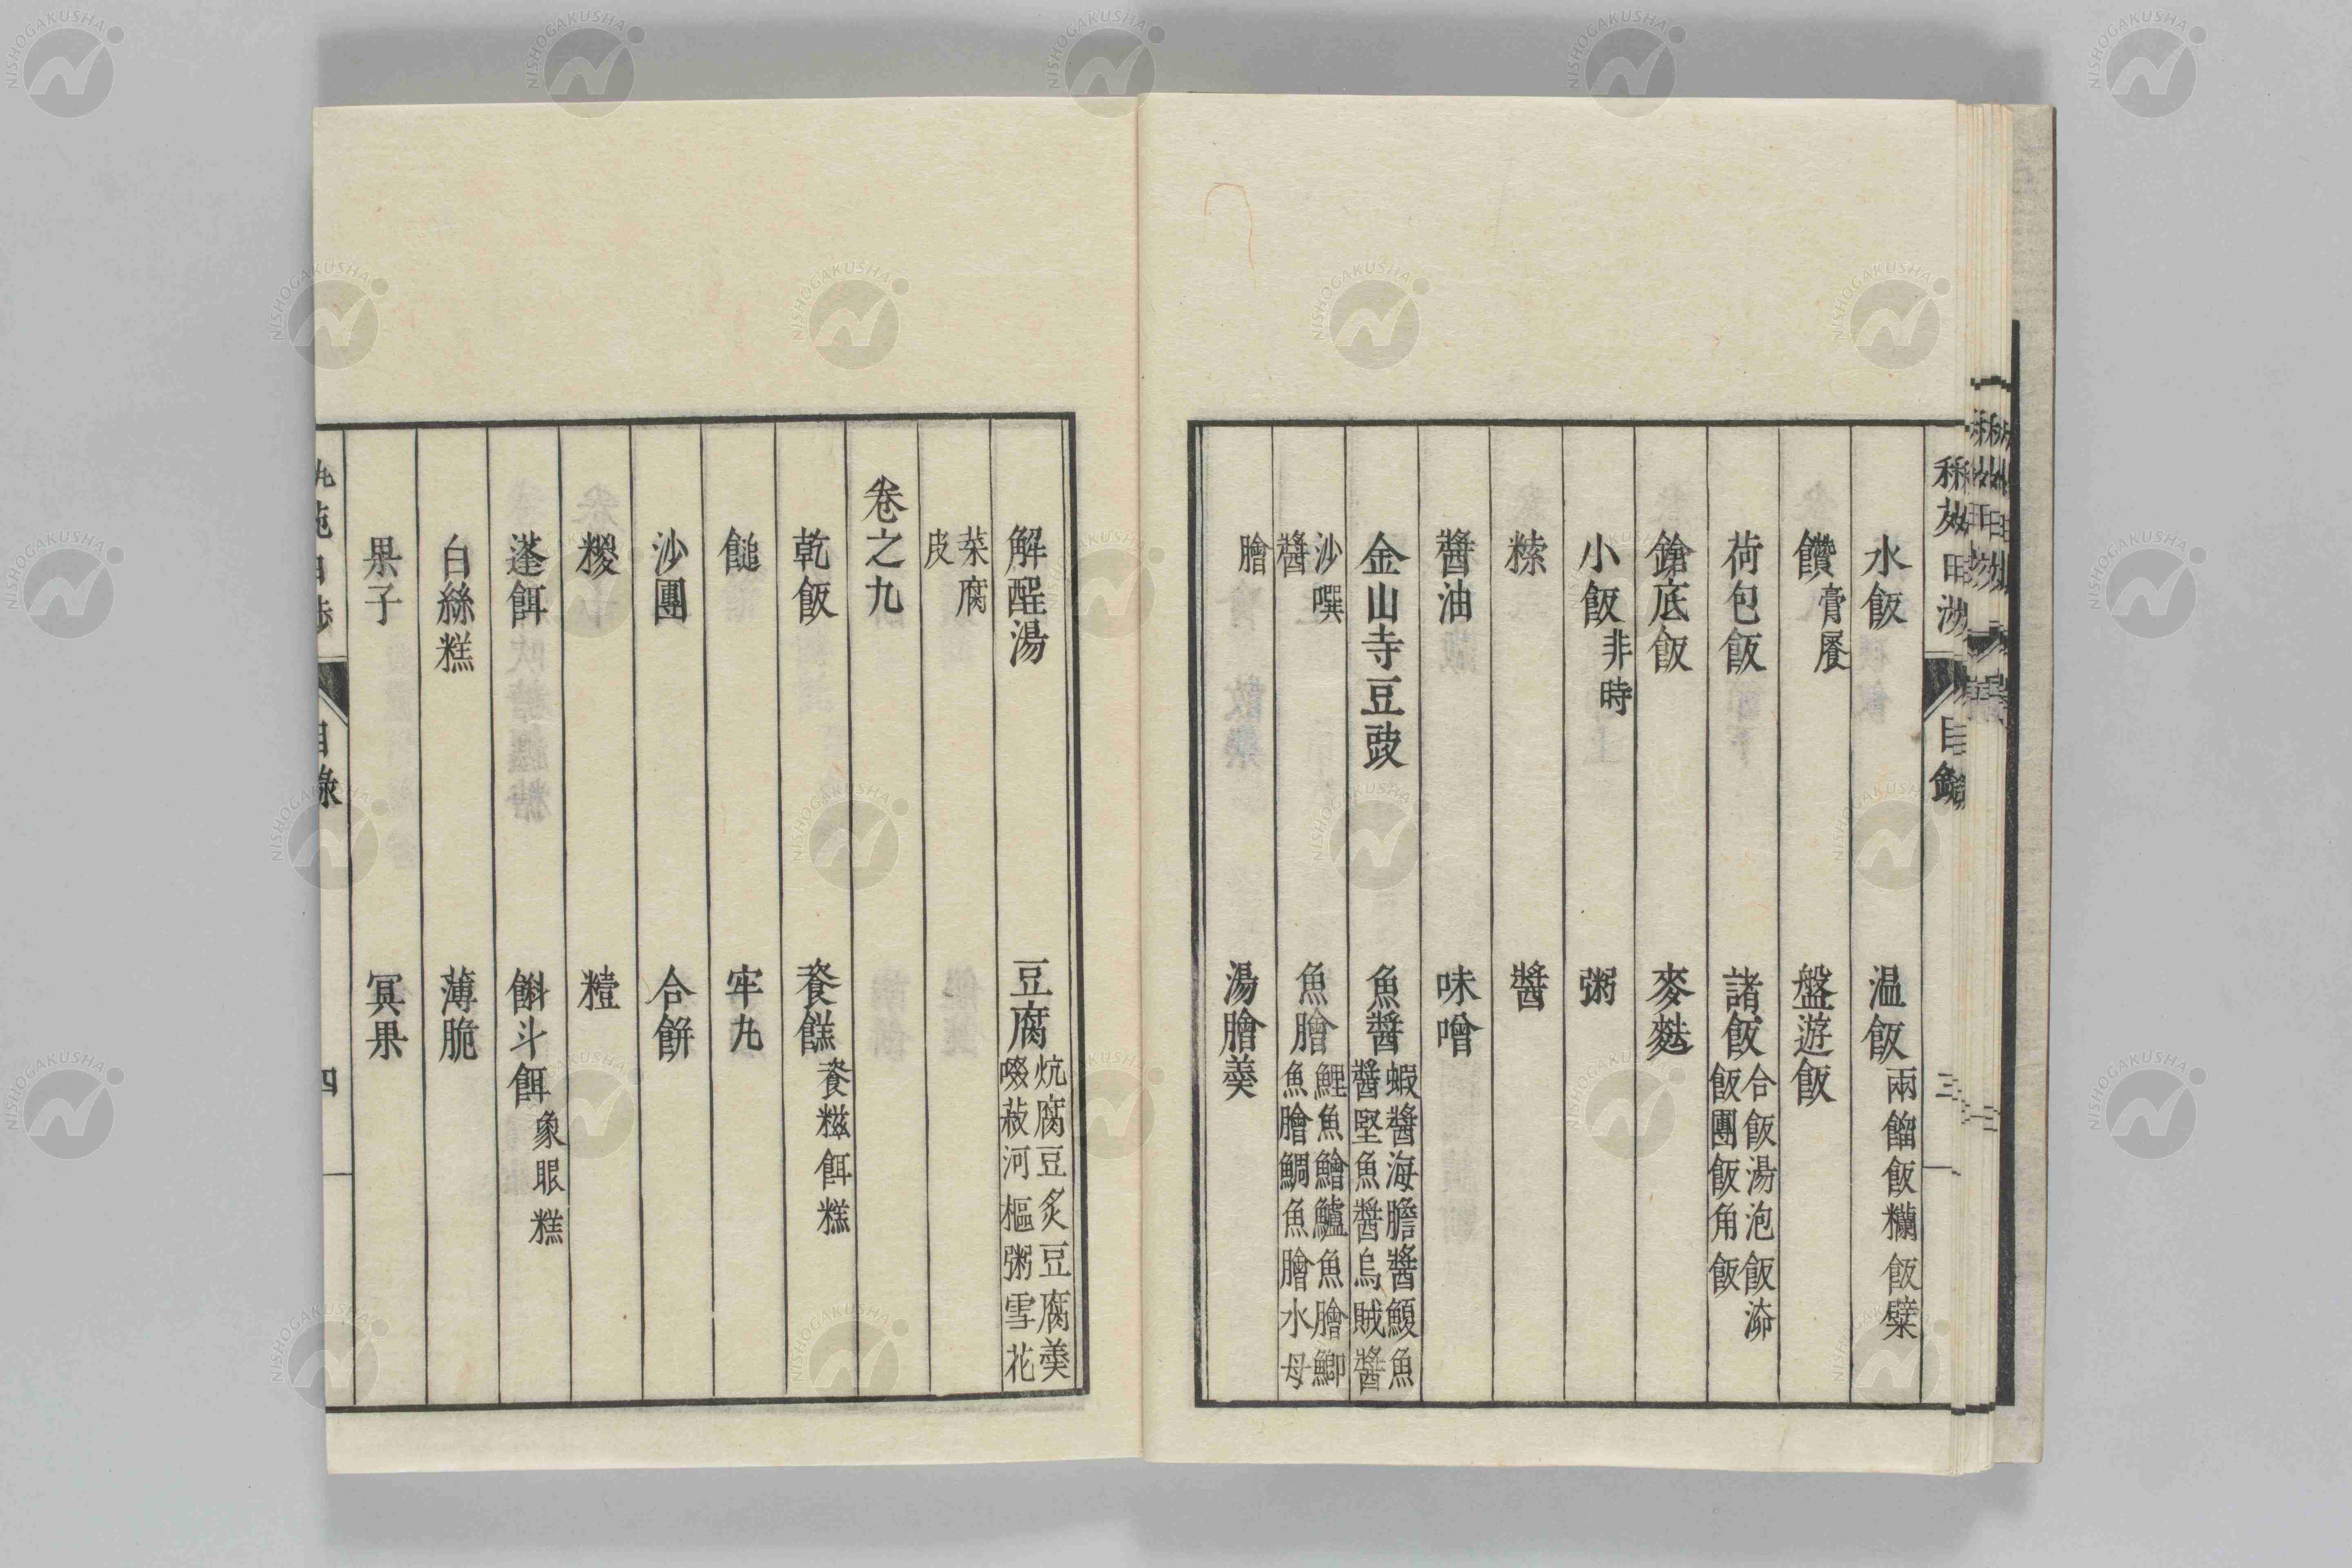 水飯　温飯 兩餾飯 糷飯 糪
饡 膏屖　盤遊飯
荷包飯　諸飯 合飯 湯泡飯
飯團 飯角 飯
鎗底飯　麥麩
小飯 非時　粥
醬
醬油　味噌
金山寺豆豉　魚醬 蝦醬 海膽醬 鰒魚
醬 堅魚醬 烏賊醬
沙噀
醬　魚膾 鯉魚鱠 鱸魚膾 鯽
魚膾 鯛魚膾 水母
膾　湯膾羹
目錄
三
解酲湯　豆腐 炕腐 豆炙 豆腐羹
啜菽 河樞粥 雪花
菜腐
皮
卷之九
乾飯　餈餻 餈 糍 餌 糕
餢　牢九
沙團　合餅
糉　䊗
蓬餌　餶斗餌 象眼糕
白絲糕　薄脆
果子　冥果
目錄
四
NISHOGAKUSHA